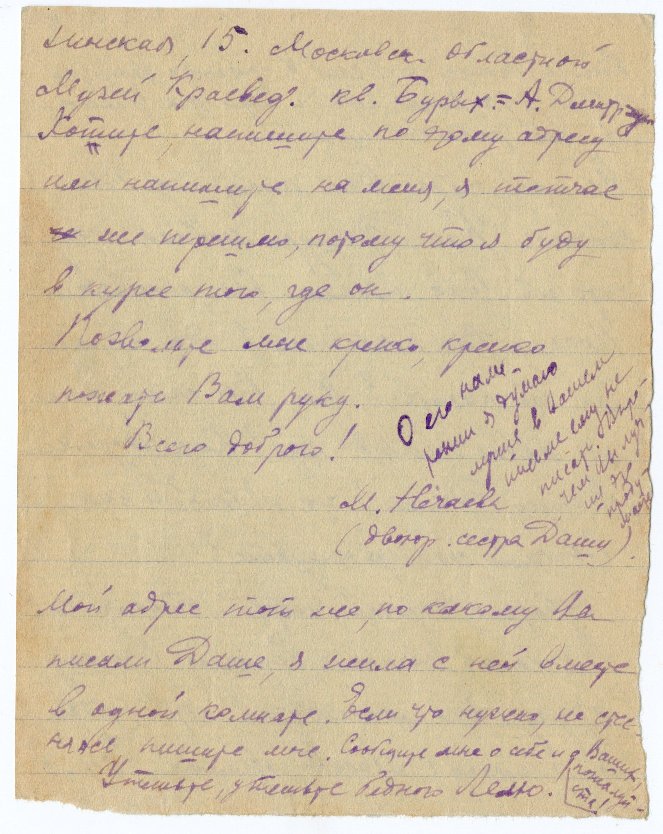 15. Московск. Областной
Музей Краевед. кв. Бурых. А. Дмитр
Хотите, напишите по этому адресу
или напишите на меня, я тотчас
же перешлю, потому что я буду
в курсе того, где он.
Позвольте мне крепко, крепко
пожать Вам руку.
Всего доброго!
О его наме-
рении я думаю
лучше в Вашем
письме ему не
писать. Впро-
чем Вы луч
М. Нечаева
(двоюр. сестра Даши)
Мой адрес тот же, по какому Вы
писали Даше, я жила с ней вместе
в одной комнате. Если что нужно, не стес-
няясь пишите мне. Сообщите мне о себе и о Ваших,
пожалуй-
ста!
Утешьте, утешьте бедного Лелю.